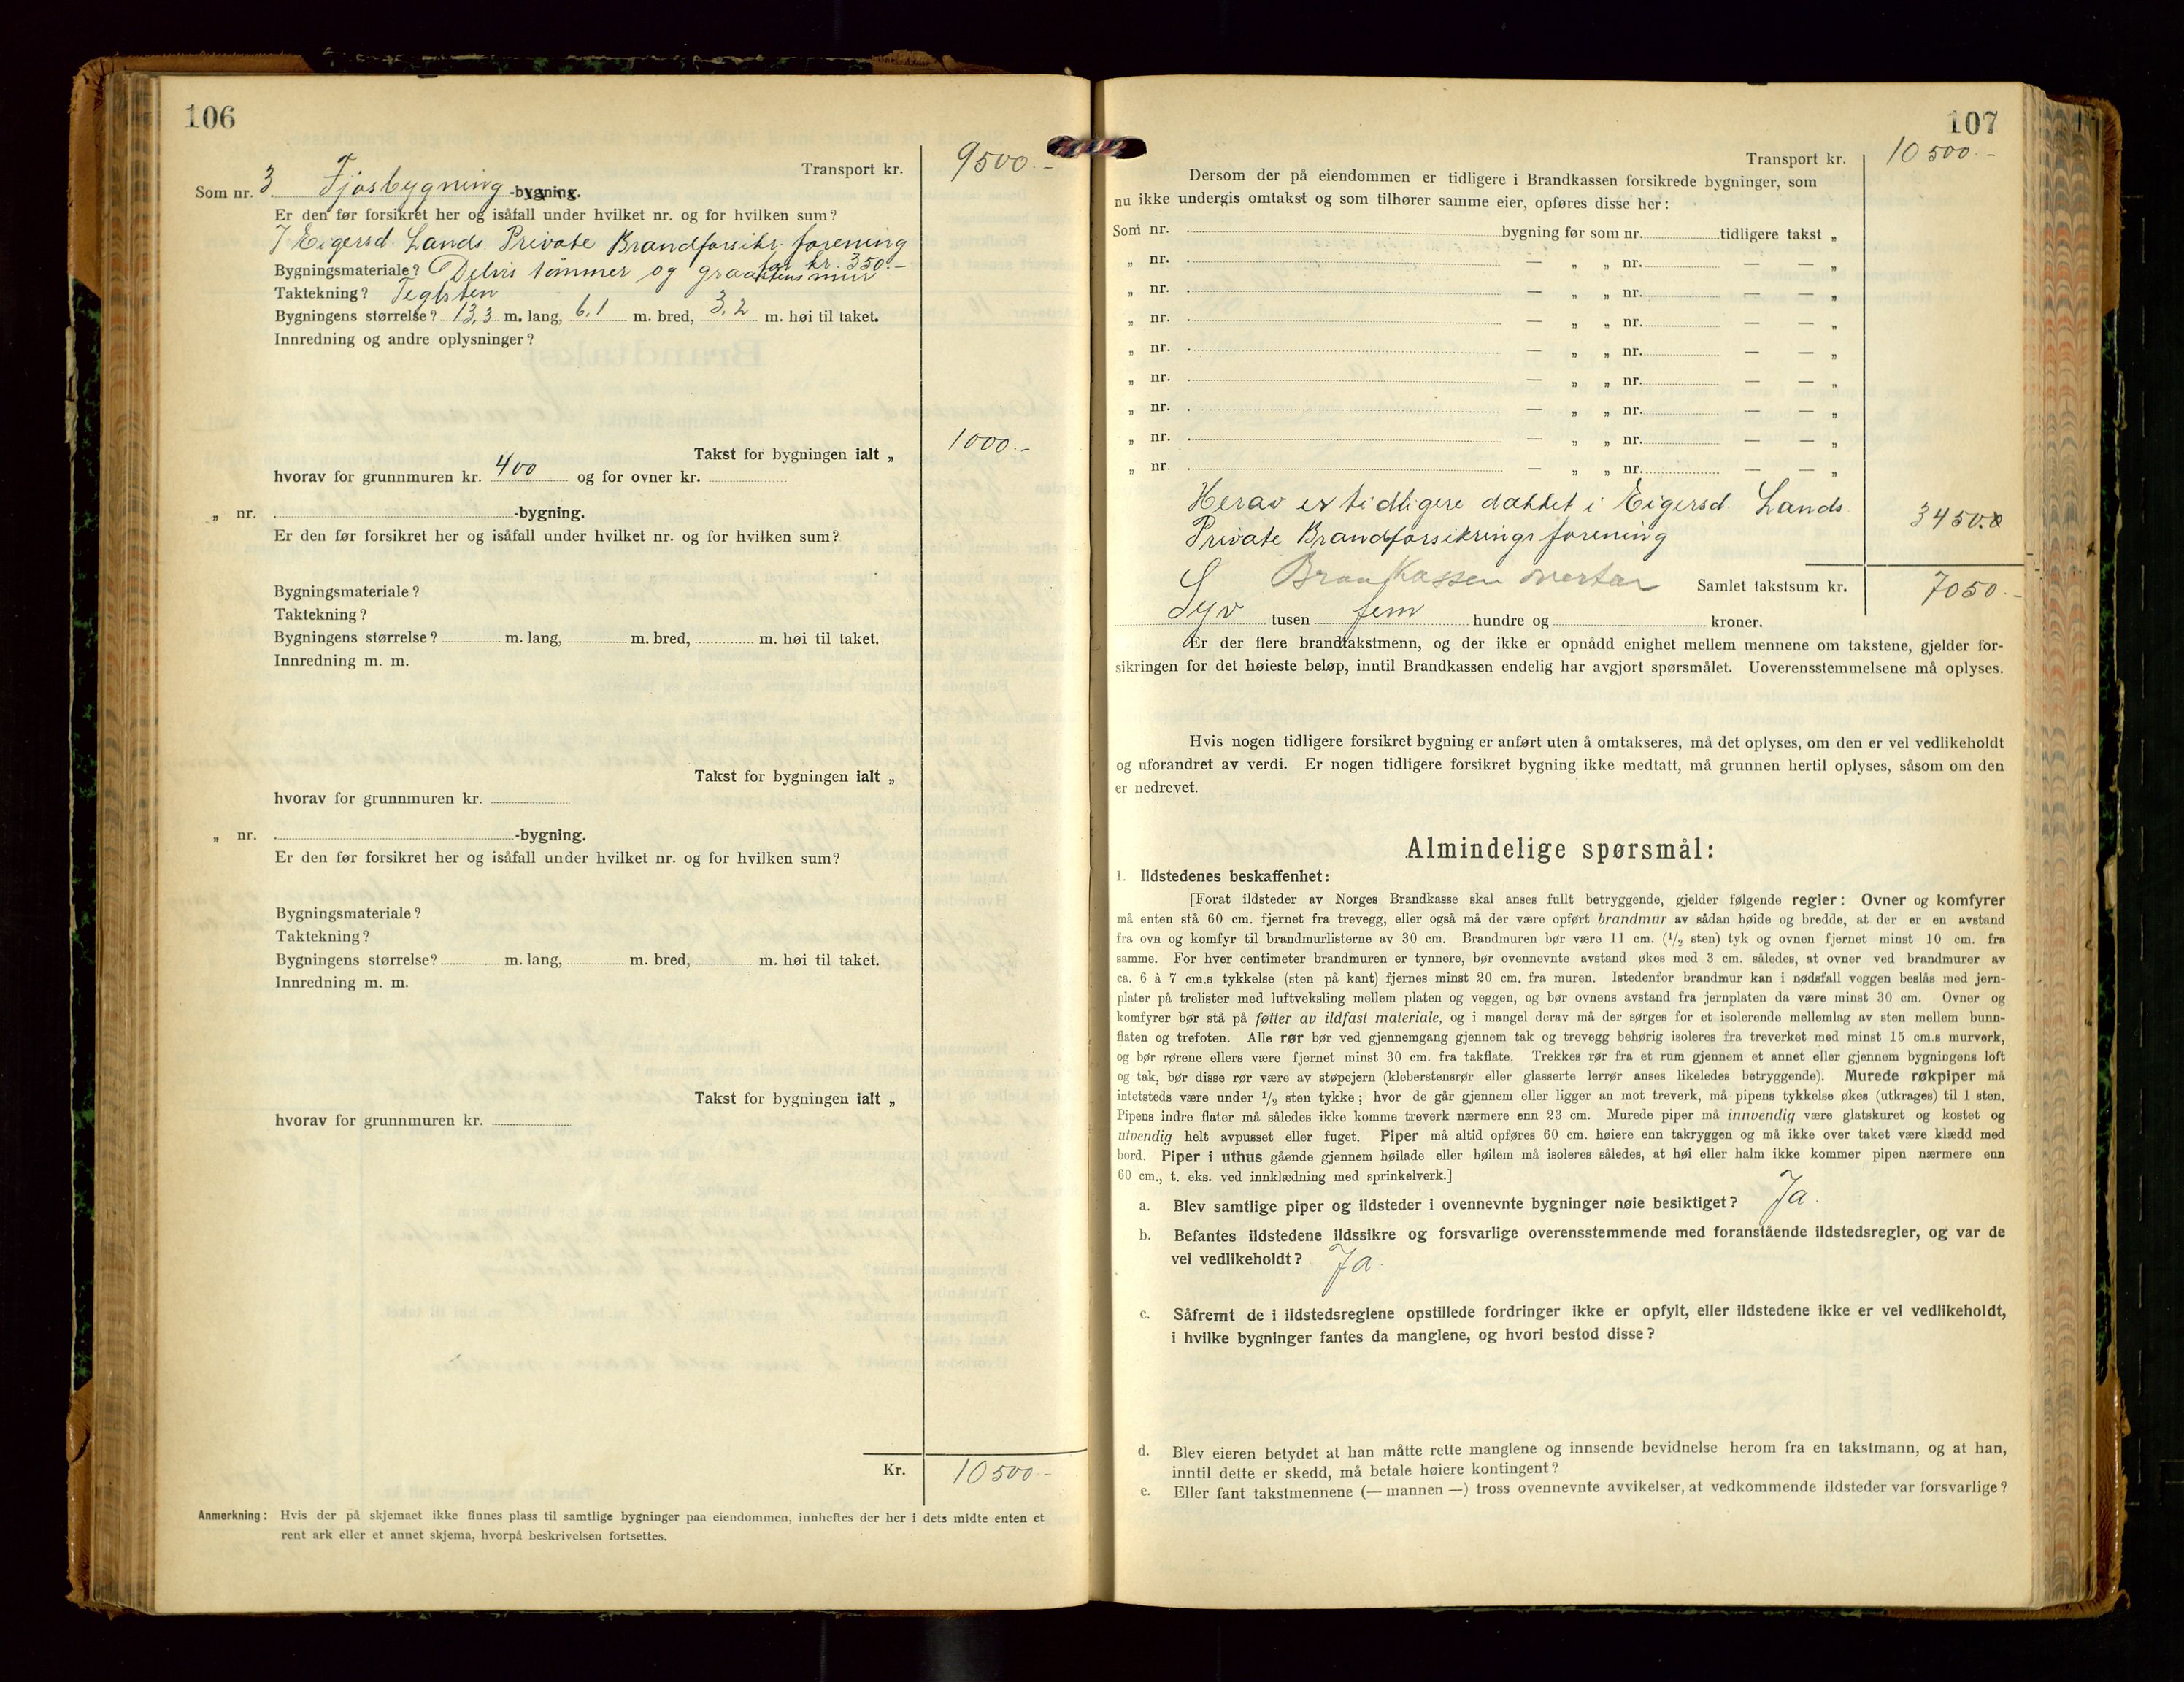 106
Transport kr. 9500.-
Som nr. 3 Fjøsbygning -bygning.
Er den før forsikret her og isåfall under hvilket nr. og for hvilken sum?
I Eigersd. Lands Private Brandforsikr. forening
for kr. 350.-
Bygningsmateriale? Delvis tømmer og graastensmur
Taktekning? Teglsten
Bygningens størrelse? 13,3 m. lang, 6,1 m. bred, 3,2 m. høi til taket.
Innredning og andre oplysninger?
Takst for bygningen ialt „ 1000.-
hvorav for grunnmuren kr. 400 og for ovner kr.
„ nr. -bygning.
Er den før forsikret her og isåfall under hvilket nr. og for hvilken sum?
Bygningsmateriale?
Taktekning?
Bygningens størrelse? m. lang, m. bred, m. høi til taket.
Innredning m. m.
Takst for bygningen ialt „
hvorav for grunnmuren kr.
„ nr. -bygning.
Er den før forsikret her og isåfall under hvilket nr. og for hvilken sum?
Bygningsmateriale?
Taktekning?
Bygningens størrelse? m. lang, m. bred, m. høi til taket.
Innredning m. m.
Takst for bygningen ialt „
hvorav for grunnmuren kr.
Kr. 10500.-
Anmerkning: Hvis der på skjemaet ikke finnes plass til samtlige bygninger paa eiendommen, innheftes der her i dets midte enten et
rent ark eller et annet skjema, hvorpå beskrivelsen fortsettes.
107
Transport kr. 10500.-
Dersom der på eiendommen er tidligere i Brandkassen forsikrede bygninger, som
nu ikke undergis omtakst og som tilhører samme eier, opføres disse her:
Som nr. bygning før som nr. tidligere takst „
„ nr. — „ „ nr. — — „
„ nr. — „ „ nr. — — „
„ nr. — „ „ nr. — — „
„ nr. — „ „ nr. — — „
„ nr. — „ „ nr. — — „
„ nr. — „ „ nr. — — „
„ nr. — „ „ nr. — — „
„ nr. — „ „ nr. — — „
Herav er tidligere dækket i Eigersd. Lands
Private Brandforsikrings forening 3450.-
Brankassen overtar Samlet takstsum kr. 7050.-
Syv tusen fem hundre og kroner.
Er der flere brandtakstmenn, og der ikke er opnådd enighet mellem mennene om takstene, gjelder for-
sikringen for det høieste beløp, inntil Brandkassen endelig har avgjort spørsmålet. Uoverensstemmelsene må oplyses.
Hvis nogen tidligere forsikret bygning er anført uten å omtakseres, må det oplyses, om den er vel vedlikeholdt
og uforandret av verdi. Er nogen tidligere forsikret bygning ikke medtatt, må grunnen hertil oplyses, såsom om den
er nedrevet.
Almindelige spørsmål:
1. Ildstedenes beskaffenhet:
[Forat ildsteder av Norges Brandkasse skal anses fullt betryggende, gjelder følgende regler: Ovner og komfyrer
må enten stå 60 cm. fjernet fra trevegg, eller også må der være opført brandmur av sådan høide og bredde, at der er en avstand
fra ovn og komfyr til brandmurlisterne av 30 cm. Brandmuren bør være 11 cm. (1/2 sten) tyk og ovnen fjernet minst 10 cm. fra
samme. For hver centimeter brandmuren er tynnere, bør ovennevnte avstand økes med 3 cm. således, at ovner ved brandmurer av
ca. 6 à 7 cm.s tykkelse (sten på kant) fjernes minst 20 cm. fra muren. Istedenfor brandmur kan i nødsfall veggen beslås med jern-
plater på trelister med luftveksling mellem platen og veggen, og bør ovnens avstand fra jernplaten da være minst 30 cm. Ovner og
komfyrer bør stå på føtter av ildfast materiale, og i mangel derav må der sørges for et isolerende mellemlag av sten mellem bunn-
flaten og trefoten. Alle rør bør ved gjennemgang gjennem tak og trevegg behørig isoleres fra treverket med minst 15 cm.s murverk,
og bør rørene ellers være fjernet minst 30 cm. fra takflate. Trekkes rør fra et rum gjennem et annet eller gjennem bygningens loft
og tak, bør disse rør være av støpejern (kleberstensrør eller glasserte lerrør anses likeledes betryggende). Murede røkpiper må
intetsteds være under 1/2 sten tykke; hvor de går gjennem eller ligger an mot treverk, må pipens tykkelse økes (utkrages) til 1 sten.
Pipens indre flater må således ikke komme treverk nærmere enn 23 cm. Murede piper må innvendig være glatskuret og kostet og
utvendig helt avpusset eller fuget. Piper må altid opføres 60 cm. høiere enn takryggen og må ikke over taket være klædd med
bord. Piper i uthus gående gjennem høilade eller høilem må isoleres således, at høi eller halm ikke kommer pipen nærmere enn
60 cm., t. eks. ved innklædning med sprinkelverk.]
a. Blev samtlige piper og ildsteder i ovennevnte bygninger nøie besiktiget? Ja.
b. Befantes ildstedene ildssikre og forsvarlige overensstemmende med foranstående ildstedsregler, og var de
vel vedlikeholdt? Ja.
c. Såfremt de i ildstedsreglene opstillede fordringer ikke er opfylt, eller ildstedene ikke er vel vedlikeholdt,
i hvilke bygninger fantes da manglene, og hvori bestod disse?
d. Blev eieren betydet at han måtte rette manglene og innsende bevidnelse herom fra en takstmann, og at han,
inntil dette er skedd, må betale høiere kontingent?
e. Eller fant takstmennene (— mannen —) tross ovennevnte avvikelser, at vedkommende ildsteder var forsvarlige?